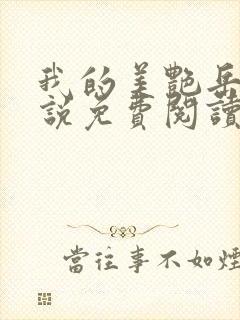 我的美艷岳
說免費閱讀
當往事不如煙